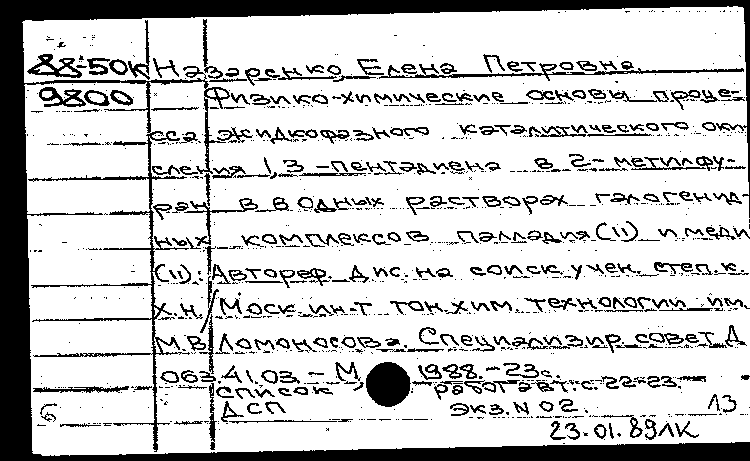 88-50К Назаренко, Елена Петровна
9800 Физико-химические основы проце-
сса жидкофазного каталитического оки
сления 1,3-пентадиена в 2-метилфу-
ран в водных растворах галогенид-
ных комплексов палладия (II) и меди
(II): Автореф. дис. на соиск. учен. степ. к.
х.н/Моск. ин-т тон. хим. технологии им.
М.В Ломоносова. Специализир. совет Д
063 41.03. - М, 1988. - 23с.
список работ авт: с. 22-23.
6 ДСП экз. N 02. 13
23.01.89ЛК